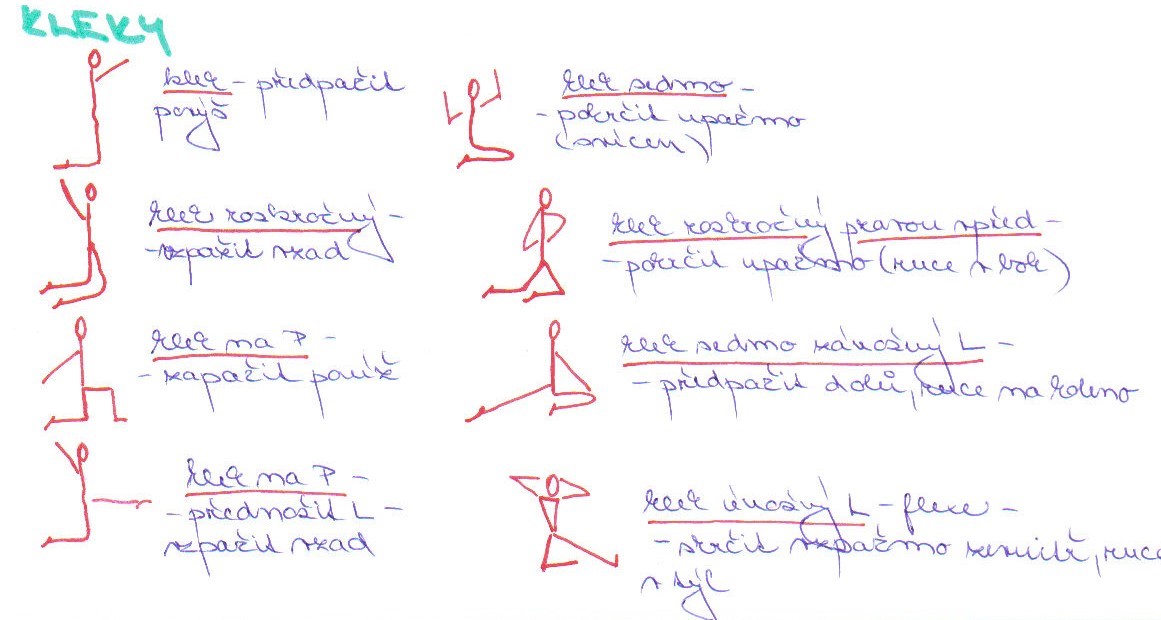 KLEKY
klek – předpažit
povýš
klek sedmo –
– pokrčit upažmo
(svícen)
klek rozkročný –
– vzpažit vzad
klek rozkročný pravou vpřed –
– pokrčit upažmo (ruce v bok)
klek na P –
– zapažit poníž
klek sedmo zánožný L –
– předpažit dolů, ruce na koleno
klek na P –
– přednožit L –
vzpažit vzad
klek únožný L – flexe –
– skrčit vzpažmo zevnitř, ruce
v týl